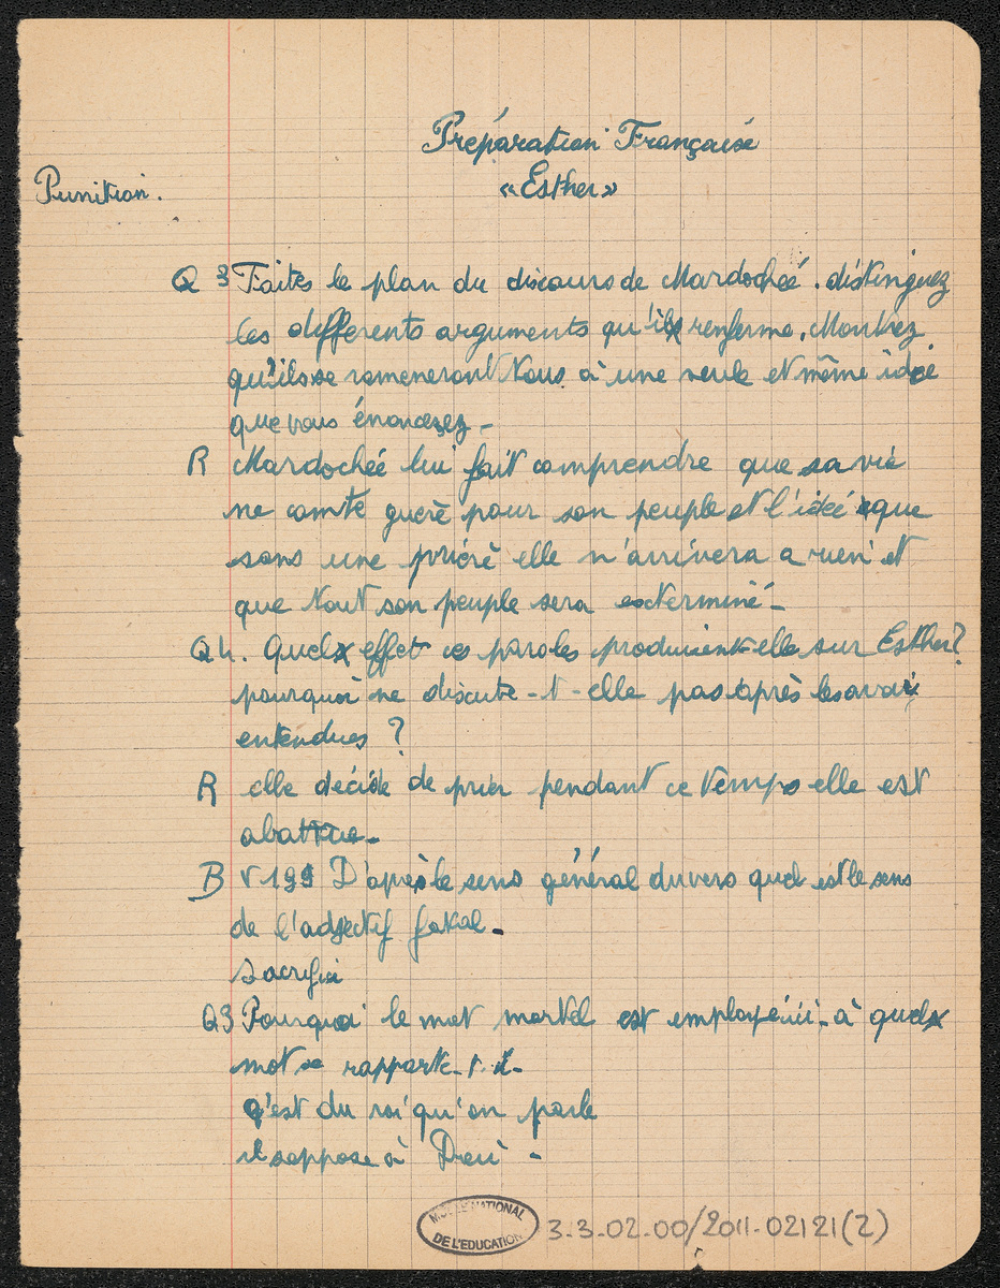 Préparation Française
Punition.
« Esther »
Q 3 Faites le plan du discours de Mardocheé . distinguez
les differents arguments qu'il renferme. Montrez
qu'ils se rameneront tous à une seule et même idée
que vous énoncerez -
R Mardocheé lui fait comprendre que sa vie
ne comte guère pour son peuple et l'idée que
sans une prière elle n'arrivera a rien et
que tout son peuple sera exterminé -
Q4. Quel effet ces paroles produisent-elle sur Esther ?
pourquoi ne discute-t-elle pas après les avoir
entendues ?
R elle décide de prier pendant ce temps elle est
abattue -
B v 199 D'après le sens général du vers quel est le sens
de l'adjectif fatal -
Sacrifié
Q3 Pourquoi le mot mortel est employé ici - à quel
mot se rapporte-t-il -
c'est du roi qu'on parle
il s'oppose à Dieu -
MUSEE NATIONAL
DE L'EDUCATION
3-3-02-00/2011-02121(2)